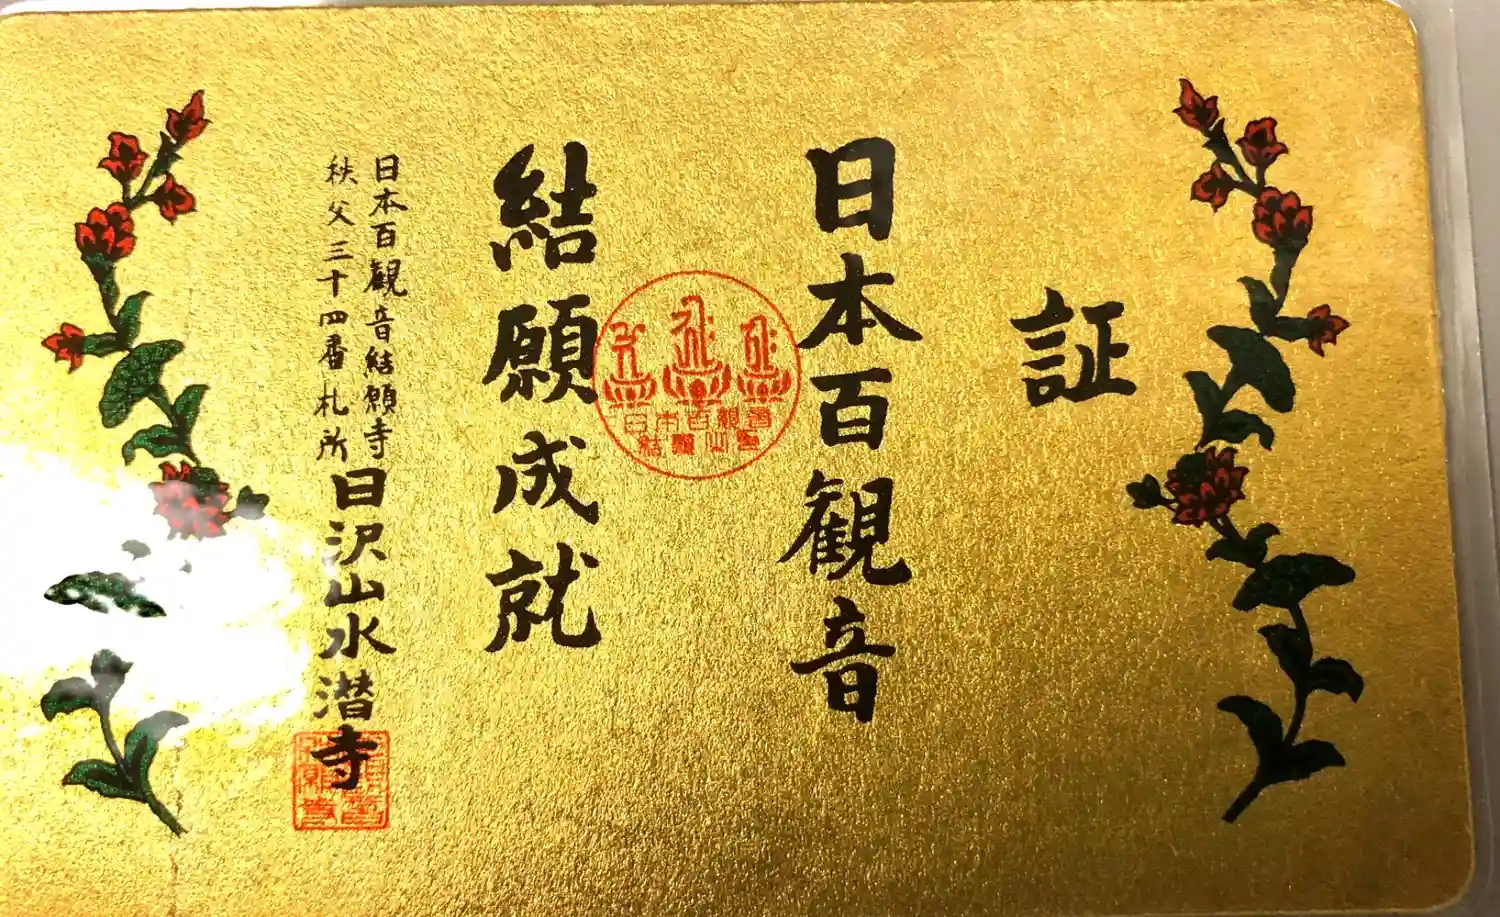 証
日本百観音
日本百観音
結願成就
日本百観音結願寺
秩父三十四番札所
日沢山水潜寺